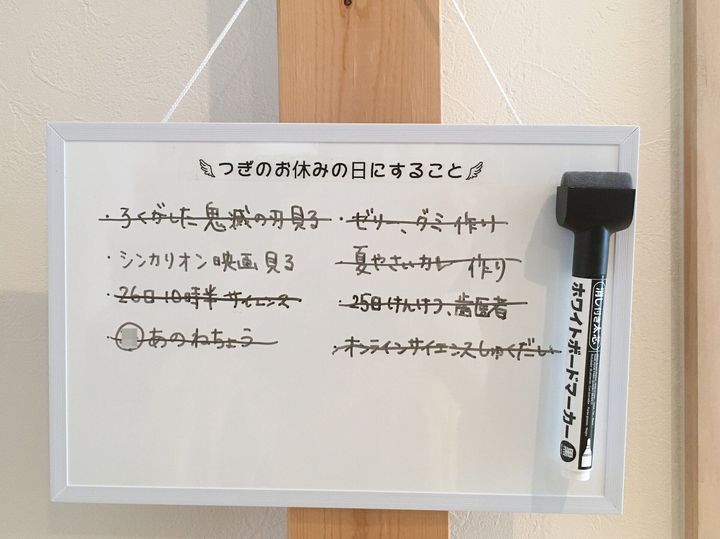 つぎのお休みの日にすること
・ろくがした鬼滅の刃見る
・シンカリオン映画見る
・26日10時半サイエンス
・あのねちょう
・ゼリー、グミ作り
夏やさいカレー作り
・25日けんけつ、歯医者
・オンラインサイエンスしゅくだい
ホワイトボードマーカー 黒